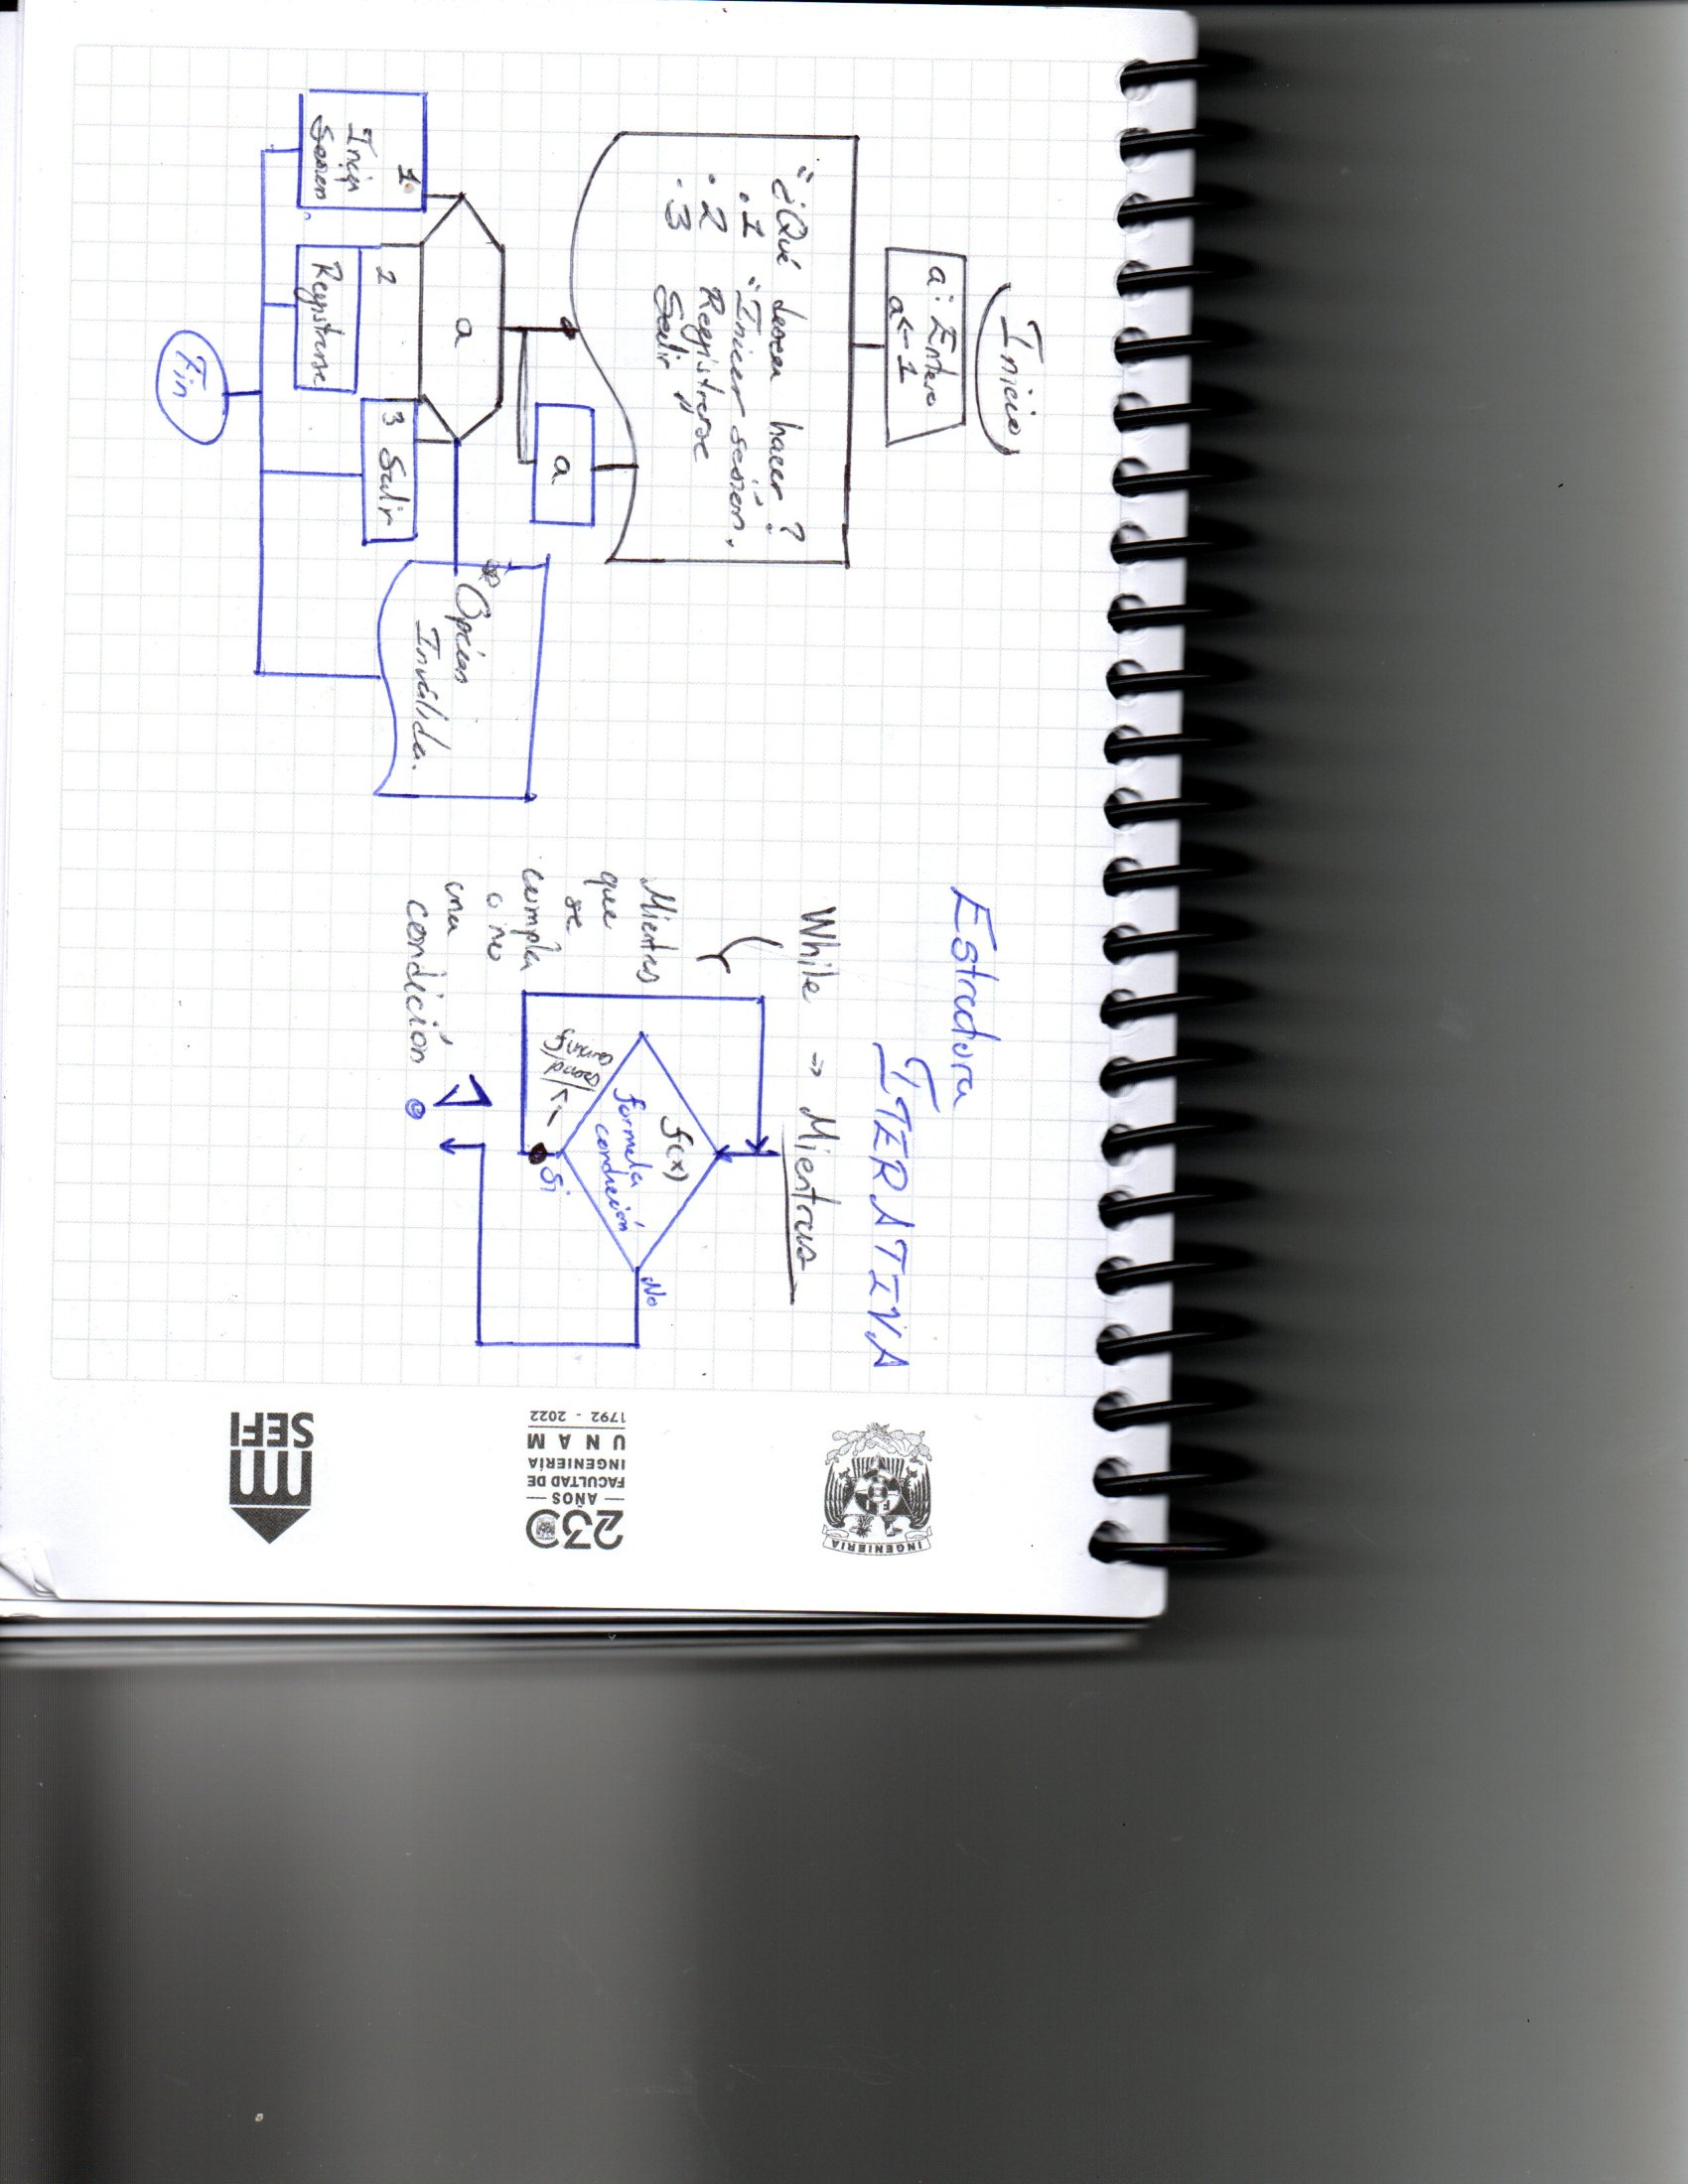 Inicio
a: Entero
a ← 1
"¿Qué desea hacer?
.1 "Inicer sesion,
.2 Registrarse
.3 Salir "
a
a
1.
Inicia
Sesion
2
Registrarse
3 Salir
Opcion
Invalida.
Fin
Estructura
ITERATIVA
While → Mientras
Mientras
que
se
cumpla
o no
una
condición
f(x)
formula
condición
Si
No
INGENIERIA
230
AÑOS
FACULTAD DE
INGENIERÍA
UNAM
1792 - 2022
SEFI